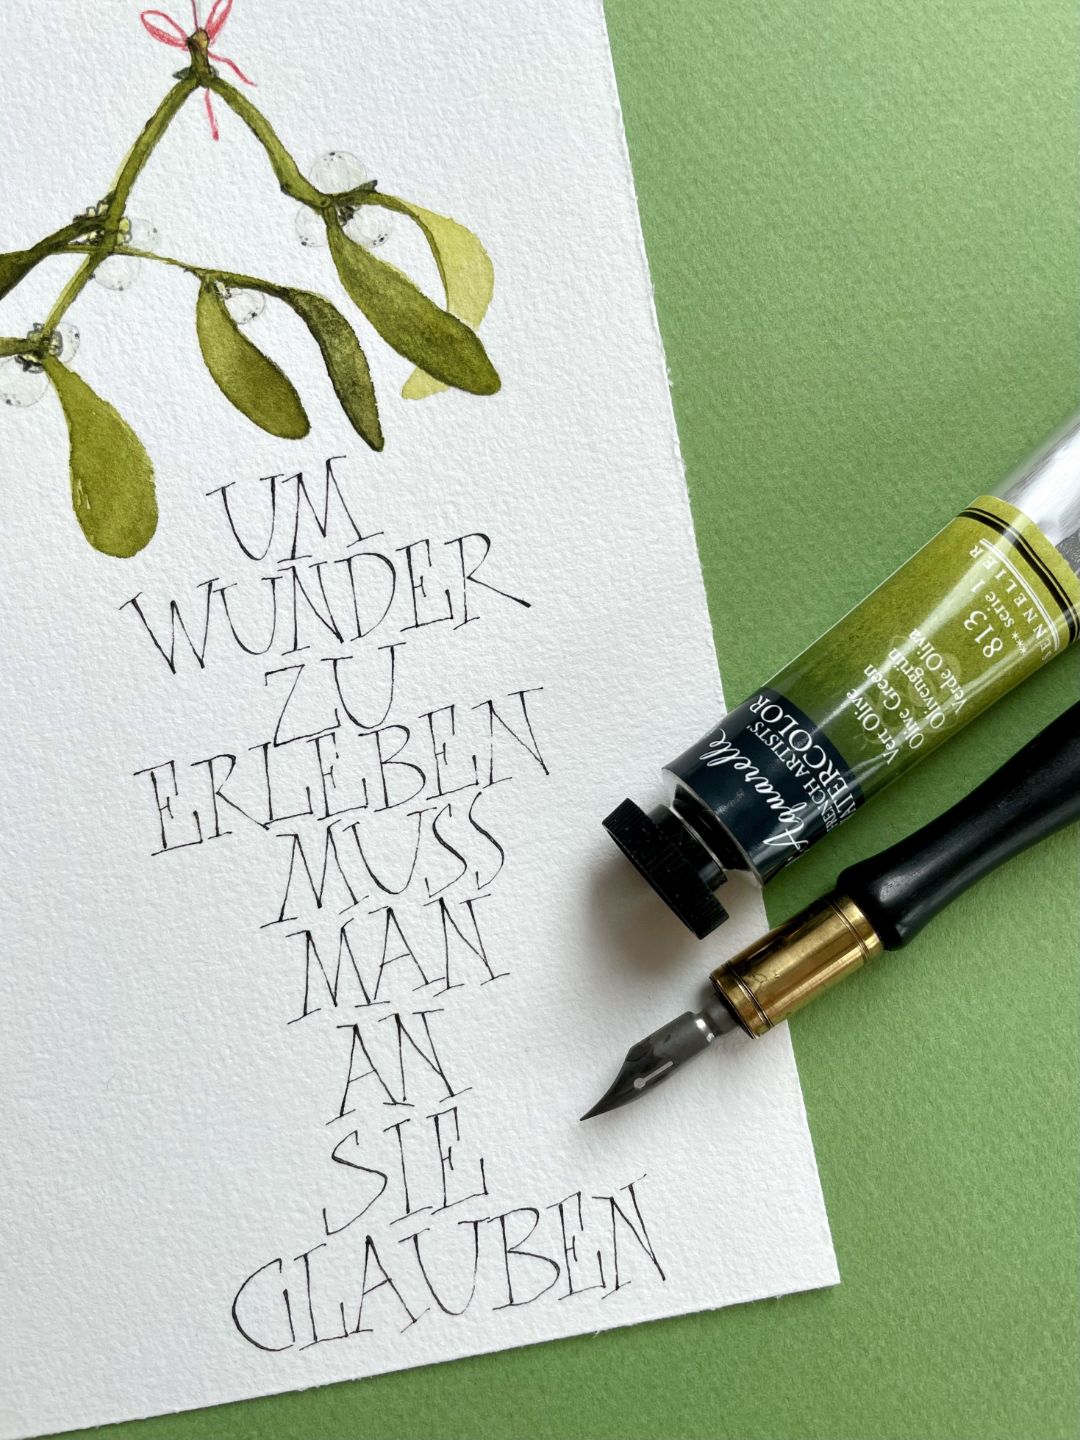 UM
WUNDER
ZU
ERLEBEN
MUSS
MAN
AN
SIE
GLAUBEN
Aquarelle
FRENCH ARTISTS'
WATERCOLOR
Vert Olive
Olive Green
Olivengrün
Verde Oliva
813
*** serie 1
ENNELIER